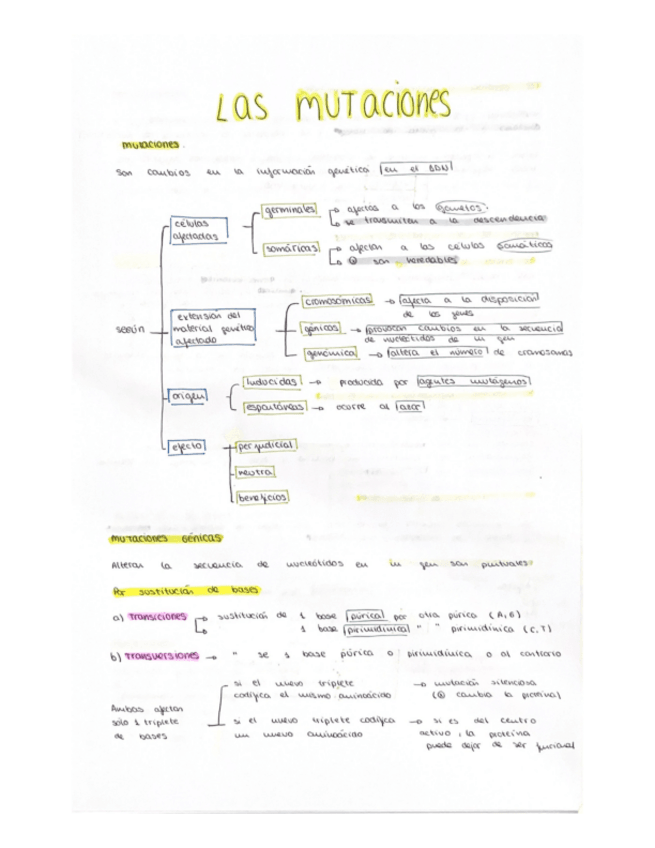 LAS MUTACIONES
mutaciones.
Son cambios en la información genética en el ADN
según
células afectadas
germinales → afectas a los gametos.
→ se transmiten a la descendencia
somáticas → afectan a las células somáticas
→ son heredables
extensión del material genético afectado
cromosómicas → afecta a la disposición de los genes
génicas → provocan cambios en la secuencia de nucleótidos de un gen
genómica → altera el número de cromosomas
origen
inducidas → producida por agentes mutágenos
espontáneas → ocurre al azar
efecto
perjudicial
neutra
beneficios
MUTACIONES GÉNICAS
Alteran la secuencia de nucleótidos en un gen son puntuales
Por sustitución de bases
a) Transiciones → sustitución de 1 base púrica por otra púrica (A, G)
→ 1 base pirimidínica " " pirimidínica (C, T)
b) Transversiones → " se 1 base púrica o pirimidínica o al contrario
Ambas afectan
solo 1 triplete
de bases
si el nuevo triplete
codifica el mismo aminoácido
→ mutación silenciosa
cambia la proteína)
si el nuevo triplete codifica
un nuevo aminoácido
→ si es del centro
activo, la proteína
puede dejar de ser funcional